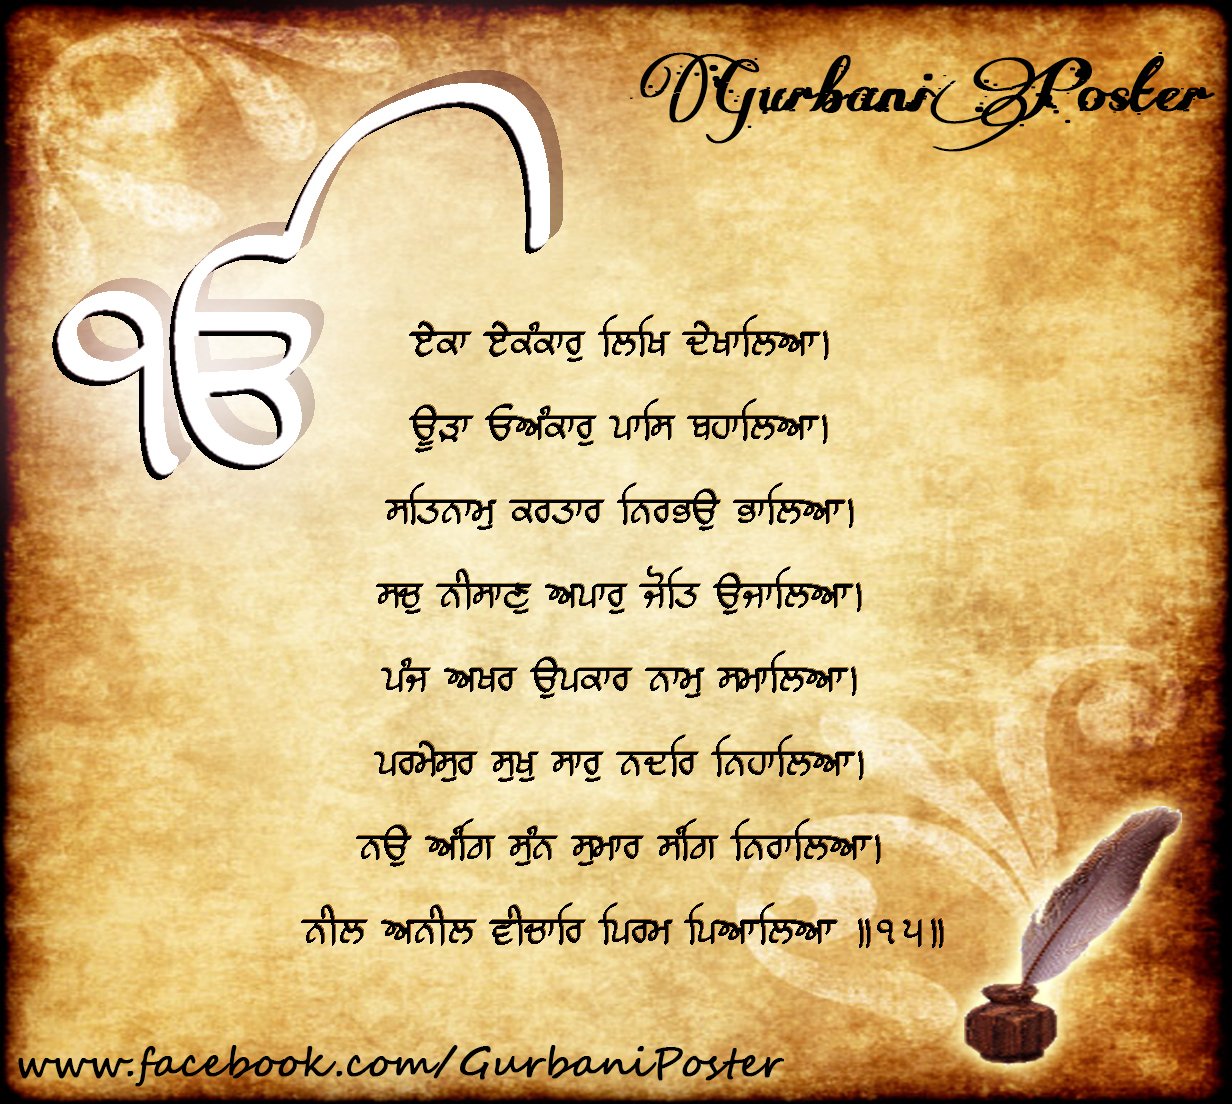 Gurbani Poster
ੴ
ਏਕਾ ਏਕੰਕਾਰੁ ਲਿਖਿ ਦੇਖਾਲਿਆ।
ਊੜਾ ਓਅੰਕਾਰੁ ਪਾਸਿ ਬਹਾਲਿਆ।
ਸਤਿਨਾਮੁ ਕਰਤਾਰ ਨਿਰਭਉ ਭਾਲਿਆ।
ਸਚੁ ਨੀਸਾਣੁ ਅਪਾਰੁ ਜੋਤਿ ਉਜਾਲਿਆ।
ਪੰਜ ਅਖਰ ਉਪਕਾਰ ਨਾਮੁ ਸਮਾਲਿਆ।
ਪਰਮੇਸੁਰ ਸੁਖੁ ਸਾਰੁ ਨਦਰਿ ਨਿਹਾਲਿਆ।
ਨਉ ਅੰਗਿ ਸੁੰਨ ਸੁਮਾਰ ਸੰਗਿ ਨਿਰਾਲਿਆ।
ਨੀਲ ਅਨੀਲ ਵੀਚਾਰਿ ਪਿਰਮ ਪਿਆਲਿਆ ॥੧੫॥
www.facebook.com/GurbaniPoster